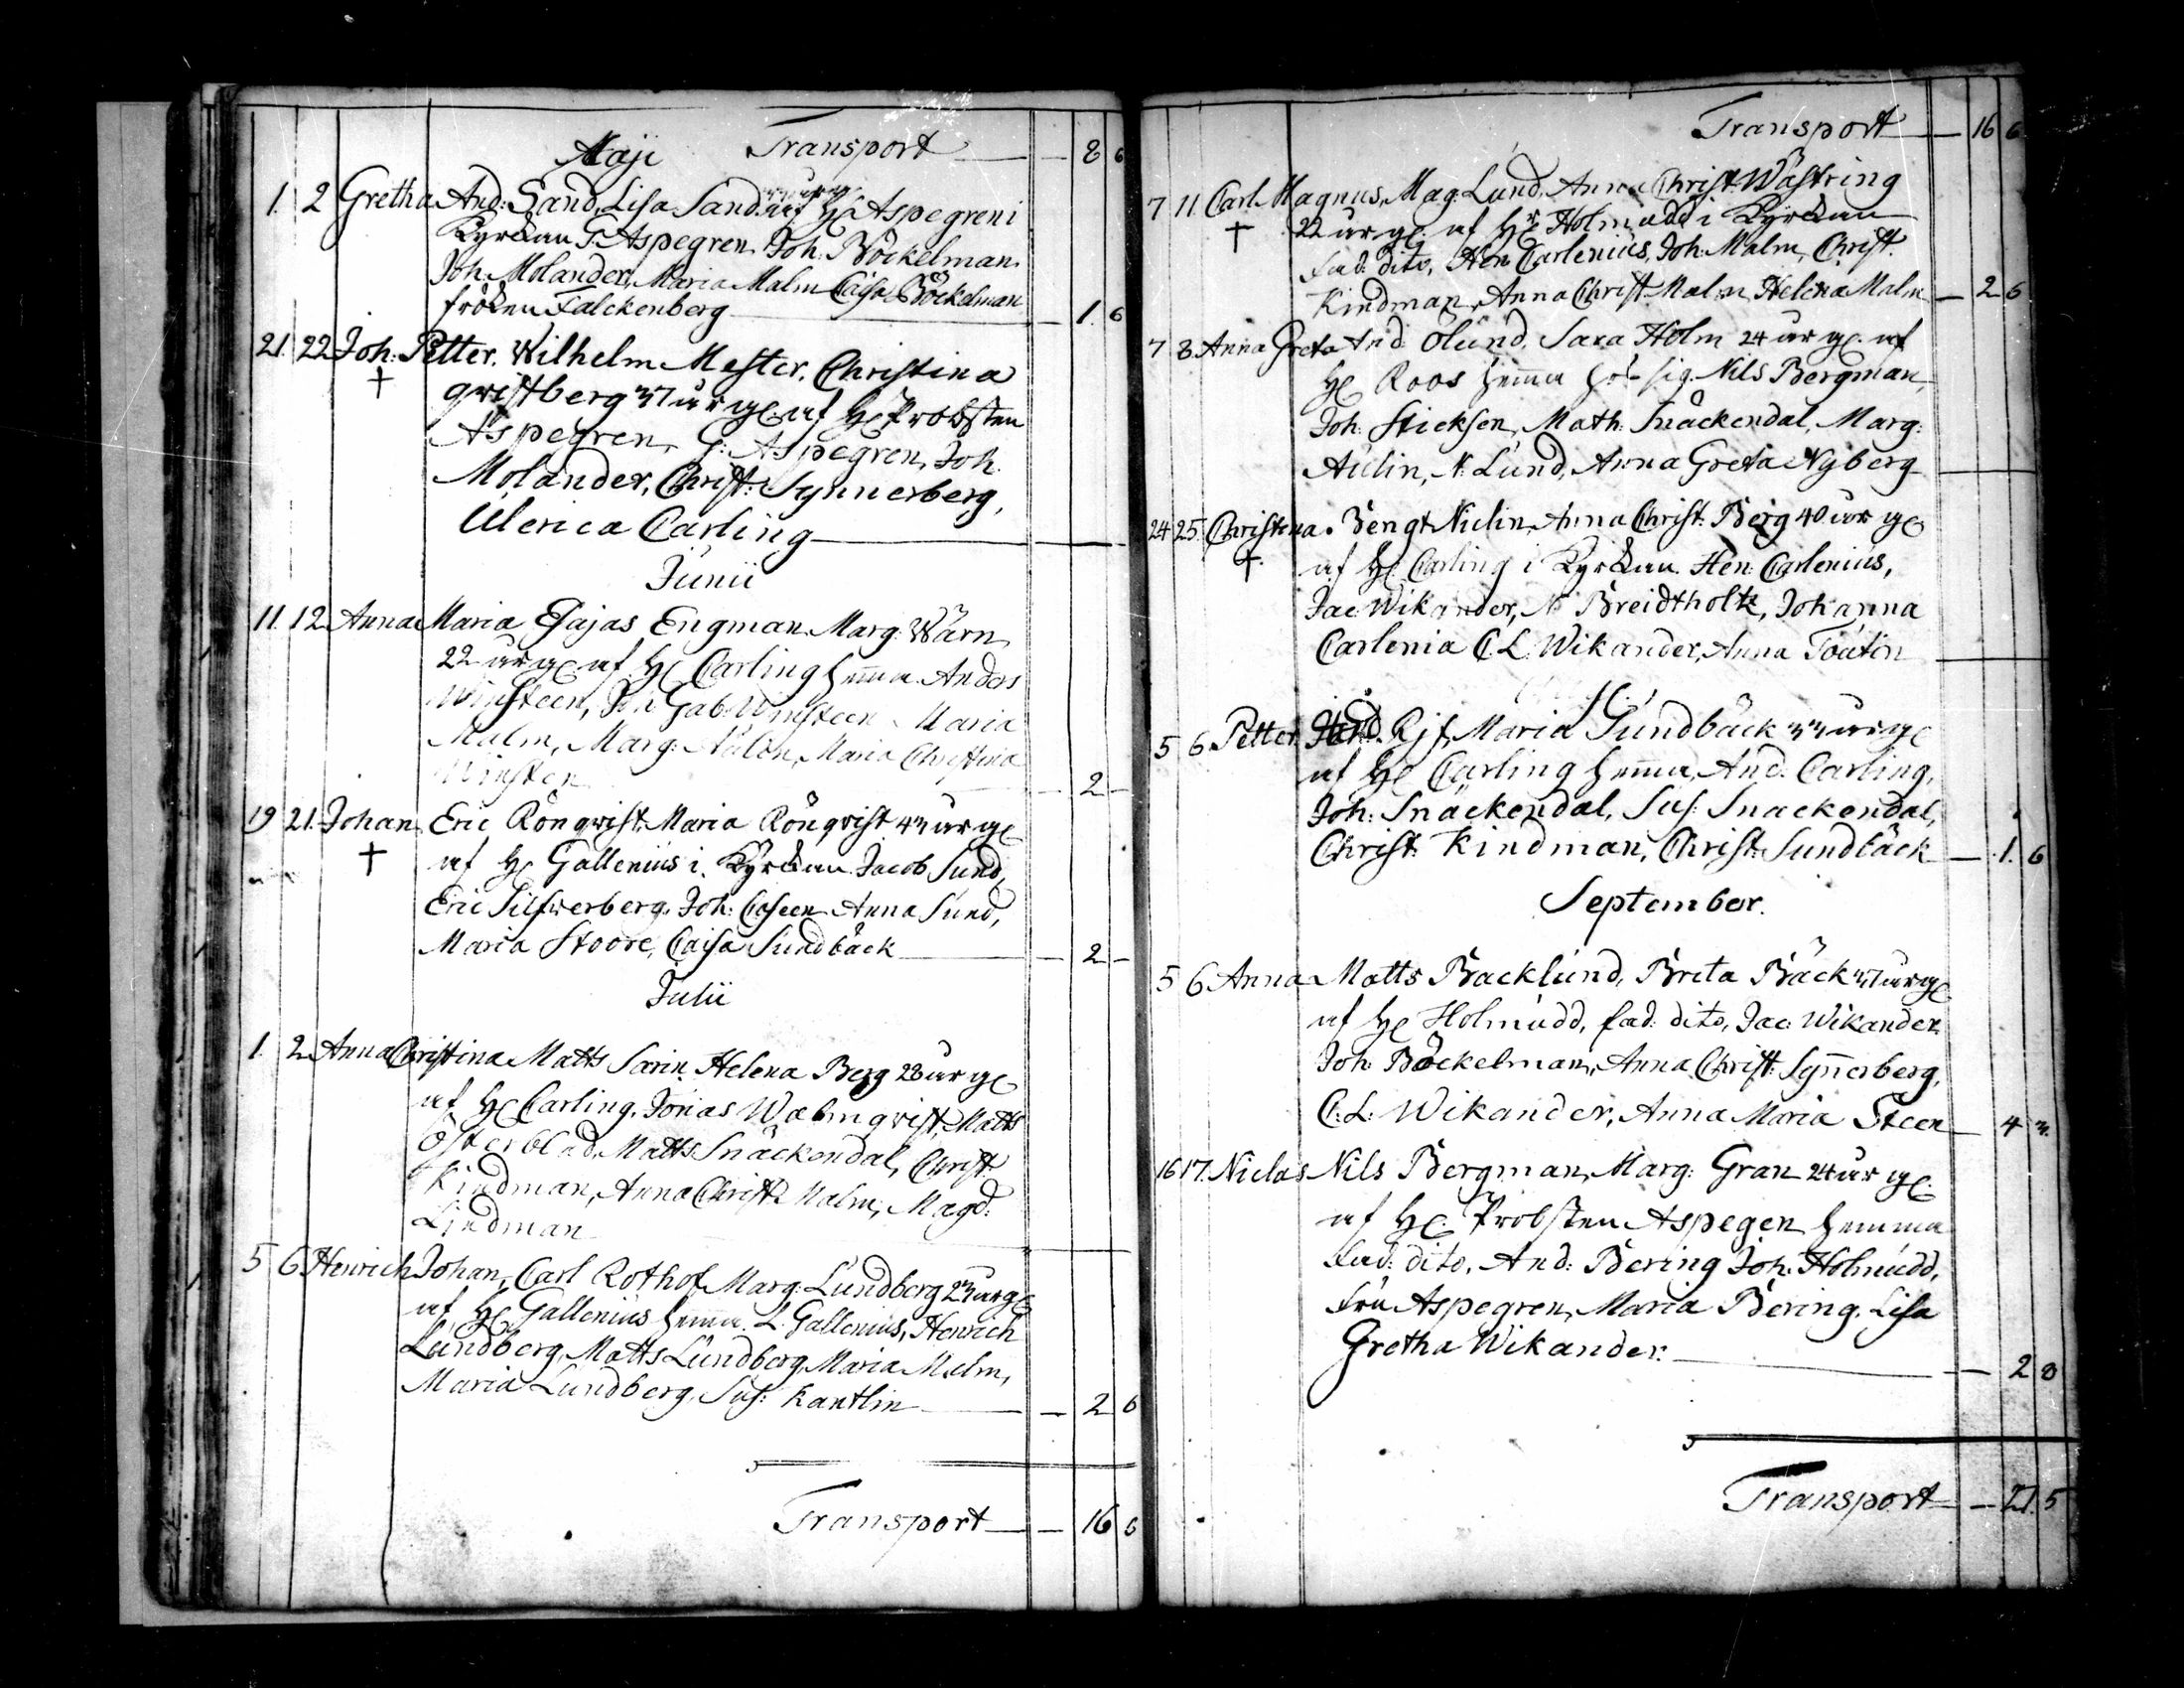 Maji Transport 8 6
1. 2 Gretha And: Sand, Lisa Sand. af H: Aspegren i
Kyrckan G: Aspegren, Joh: Böckelman
Joh: Molander, Maria Malm Caisa Böckelman
fröken Falckenberg 1. 6
21. 22 Joh: Petter. Wilhelm Mester, Christina
† qvistberg 37 år g: af H: Probsten
Aspegren, G: Aspegren, Joh.
Molander, Christ: Synnerberg,
Ulerica Carling
Junii
11. 12 Anna Maria Esajas Engman Marg: Wärn
22 år g: af H: Carling hemma Anders
Winsteen, Joh Gab: Winsteen Maria
Malm, Marg: Aulin, Maria Christina
Winsten 2 –
19 21. Johan Eric Rönqvist, Maria Rönqvist 43 år g:
† af H: Gallenius i Kyrckan Jacob Sund,
Eric Silfwerberg, Joh: Caseen Anna Sund,
Maria Stoore, Caisa Sundbäck 2 –
Julii
1. 2 Anna Christina Matts Sarin, Helena Berg 28 år g:
af H: Carling, Jonas Walmqvist, Matts
Österblad, Matts Snäckendal, Christ:
Kindman, Anna Christ: Malm, Magd:
Lindman
5 6 Henrich Johan, Carl Rothof Marg: Lundberg 23 år g:
af H: Gallenius hemma. L. Gallenius, Henrich
Lundberg, Matts Lundberg, Maria Malm,
Maria Lundberg, Sus: Kantlin 2 6
Transport 16 6
Transport 16 6
7 11 Carl Magnus, Mag: Lund, Anna Christ: Wästring
† 22 år g: af H: Holmudd i Kyrckan
fad: dito, Hen: Carlenius, Joh: Malm, Christ.
Kindman, Anna Christ: Malm, Helena Malm 2 6
7 8 Anna Greta And: Ölund, Sara Holm 24 år g: af
H: Roos hemma hos sig. Nils Bergman,
Joh: Stieksen, Math: Snäckendal, Marg:
Aulin, N: Lund, Anna Greta Nyberg
24 25 Christina. Bengt Nulin, Anna Christ: Berg 40 år g:
† af H: Carling i Kyrckan Hen: Carlenius,
Jac: Wikander, N: Breidtholtz, Johanna
Carlenia C. L. Wikander, Anna Toutin
5 6 Petter And. Rif, Maria Sundbäck 33 år g:
af H: Carling hemma, And: Carling,
Joh: Snäckendal, Sus: Snackendal,
Christ: Kindman, Christ: Sundbäck 1. 6
September.
5 6 Anna Matts Backlund, Brita Bäck 37 år g:
af H: Holmudd, fad: dito, Jac: Wikander
Joh: Böckelman, Anna Christ: Synnerberg,
C: L: Wikander, Anna Maria Steen 4 3.
16 17. Niclas Nils Bergman, Marg: Gran 24 år g:
af H: Probsten Aspegen hemma
Fad: dito, And: Bering Joh: Holmudd,
Fru Aspegren, Maria Bering, Lisa
Gretha Wikander. 2 8
Transport 5